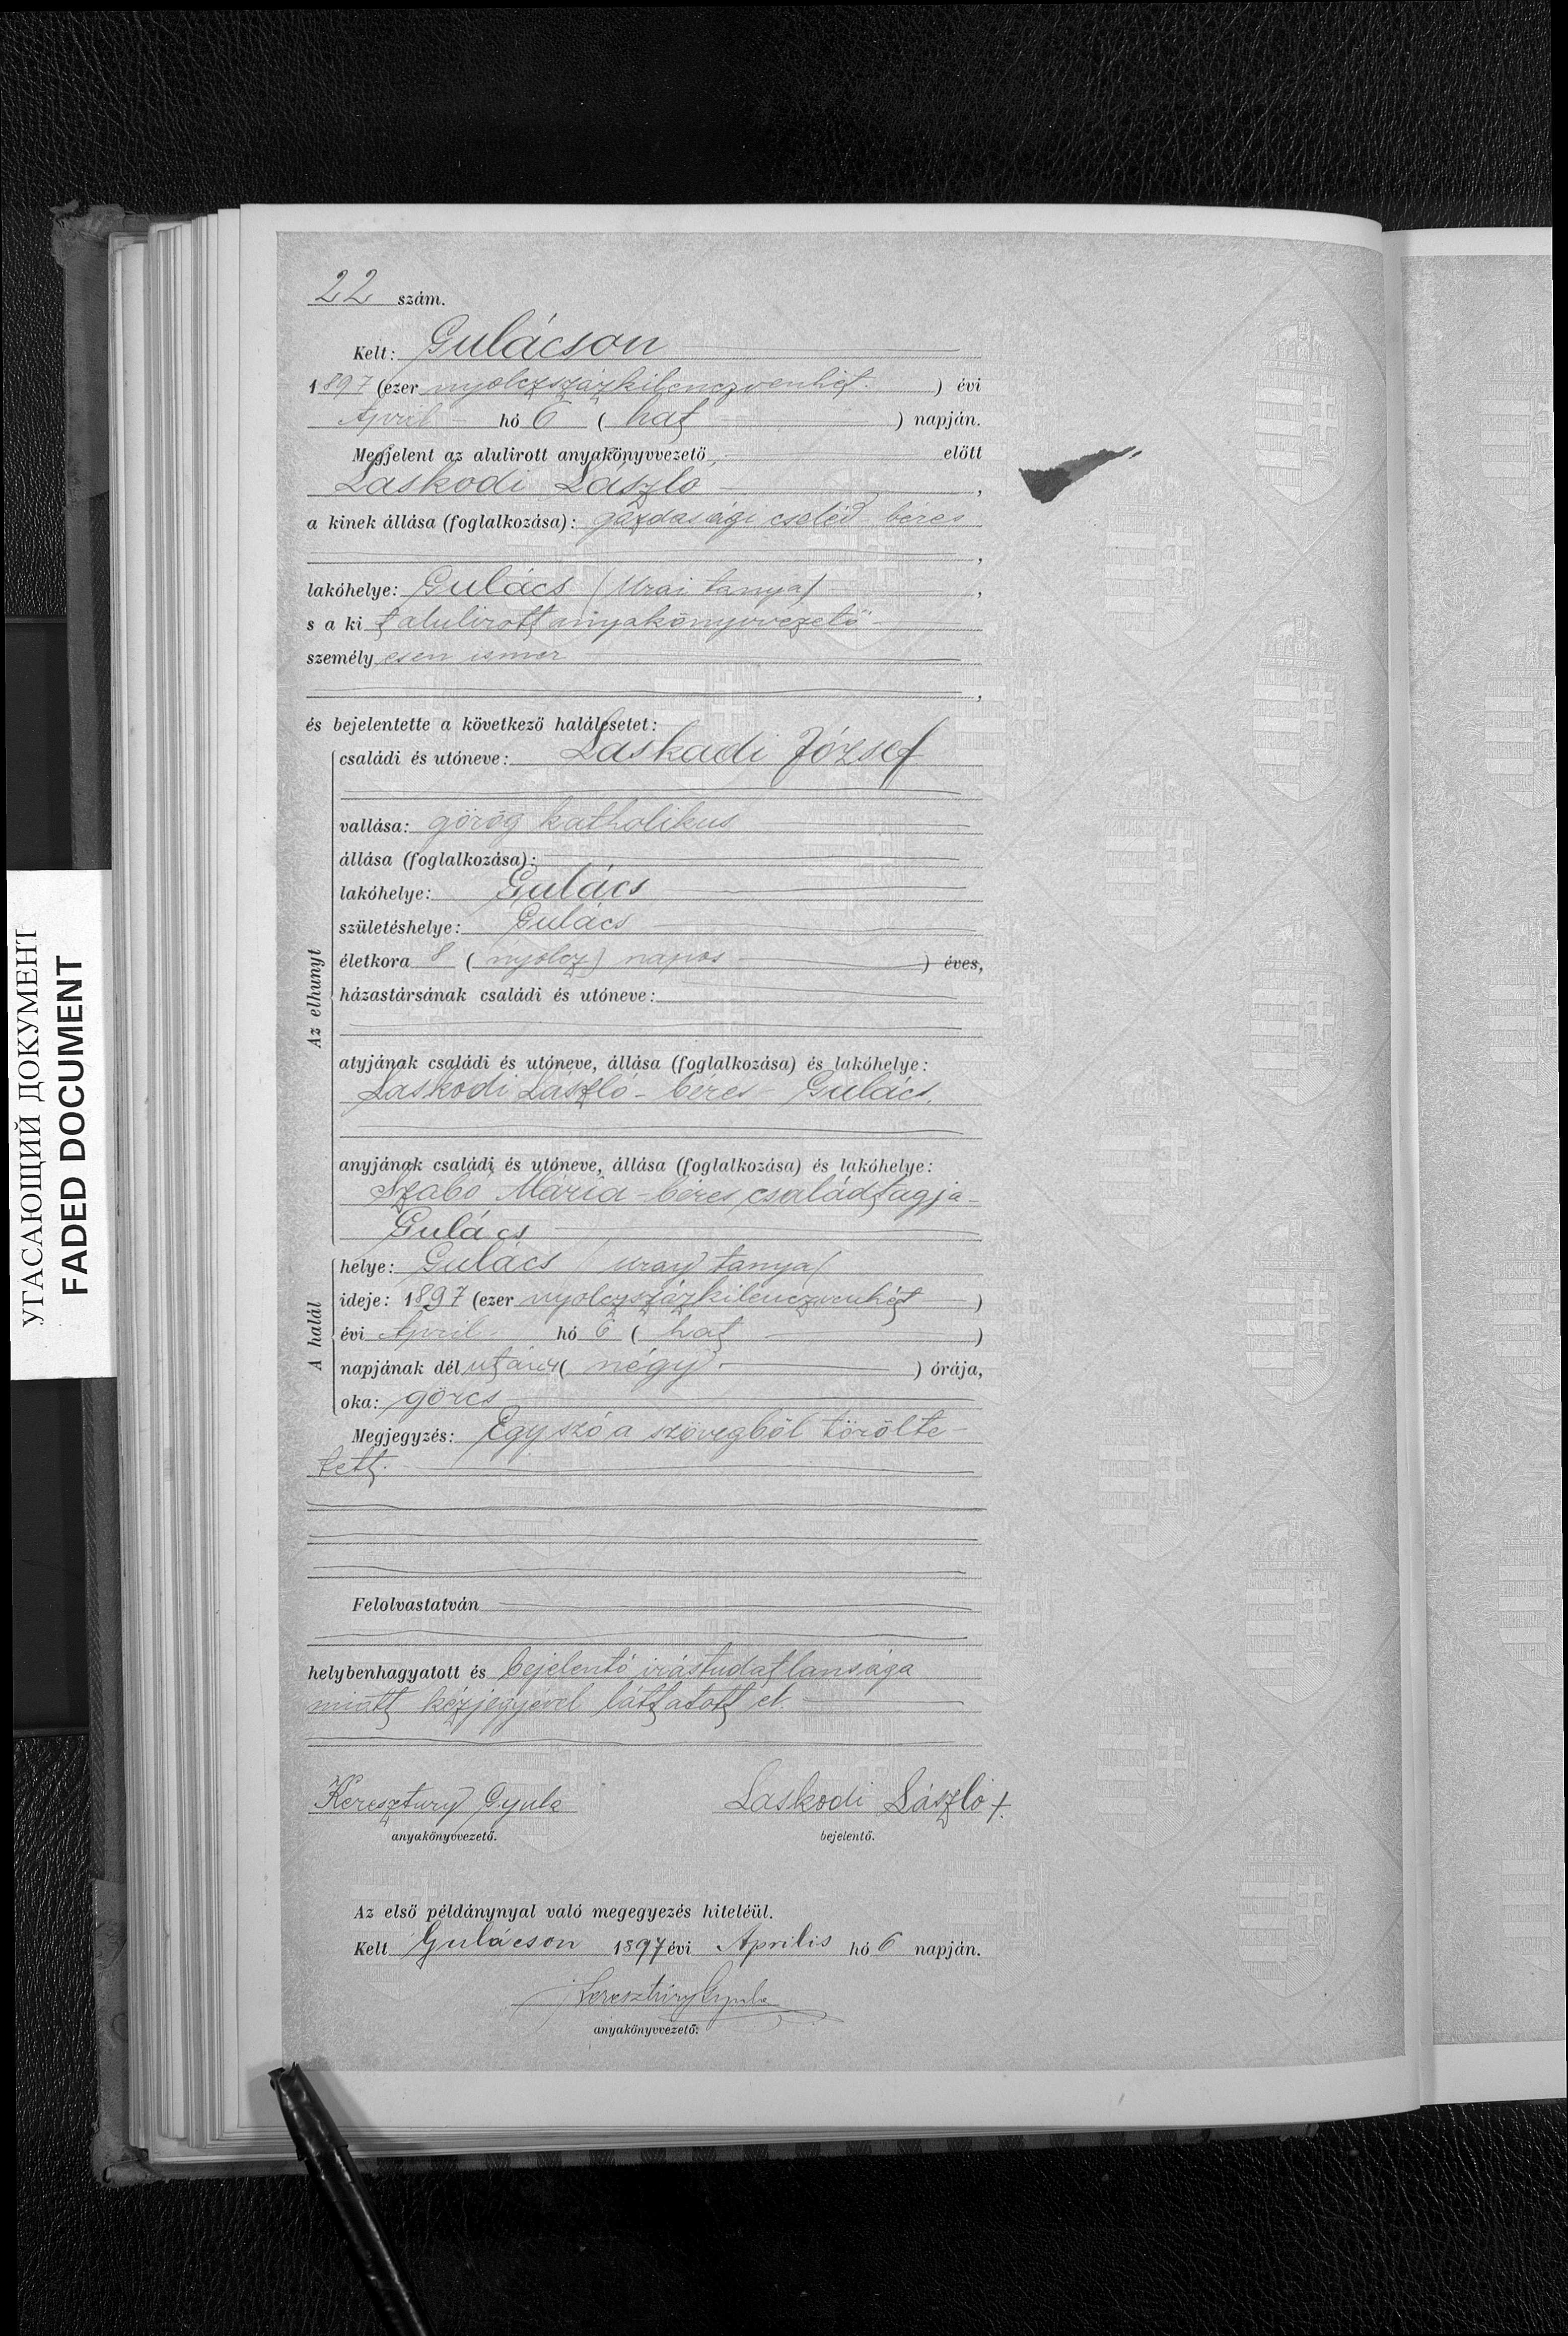 22 szám.
Kelt: Gulácson
1897 (ezer nyolczszázkilenczvenhét.) évi
April hó 6 (hat) napján.
Megjelent az alulirott anyakönyvvezető, előtt
Laskodi László,
a kinek állása (foglalkozása): gazdasági cseléd béres
,
lakóhelye: Gulács (Urai tanya),
s a ki t alulirott anyakönyvvezető
személyesen ismer
,
és bejelentette a következő halálesetet:
Az elhunyt
családi és utóneve: Laskadi József
vallása: görög katholikus
állása (foglalkozása):
lakóhelye: Gulács
születéshelye: Gulács
életkora 8 (nyolcz) napos ) éves,
házastársának családi és utóneve:
atyjának családi és utóneve, állása (foglalkozása) és lakóhelye:
Laskodi László - béres Gulács.
anyjának családi és utóneve, állása (foglalkozása) és lakóhelye:
Szabó Mária - béres családtagja -
Gulács
A halál
helye: Gulács (uray tanya)
ideje: 1897 (ezer nyolczszázkilenczvenhét)
évi April hó 6 (hat)
napjának délután (négy) órája,
oka: görcs
Megjegyzés: Egy szó a szövegből törölte-
tett.
Felolvastatván
helybenhagyatott és bejelentő irástudatlansága
miatt kézjegyével láttatott el.
Keresztury Gyula
anyakönyvvezető.
Laskodi László +.
bejelentő.
Az első példánynyal való megegyezés hiteléül.
Kelt Gulácson 1897 évi Aprilis hó 6 napján.
Keresztury Gyula
anyakönyvvezető.
УГАСАЮЩИЙ ДОКУМЕНТ
FADED DOCUMENT